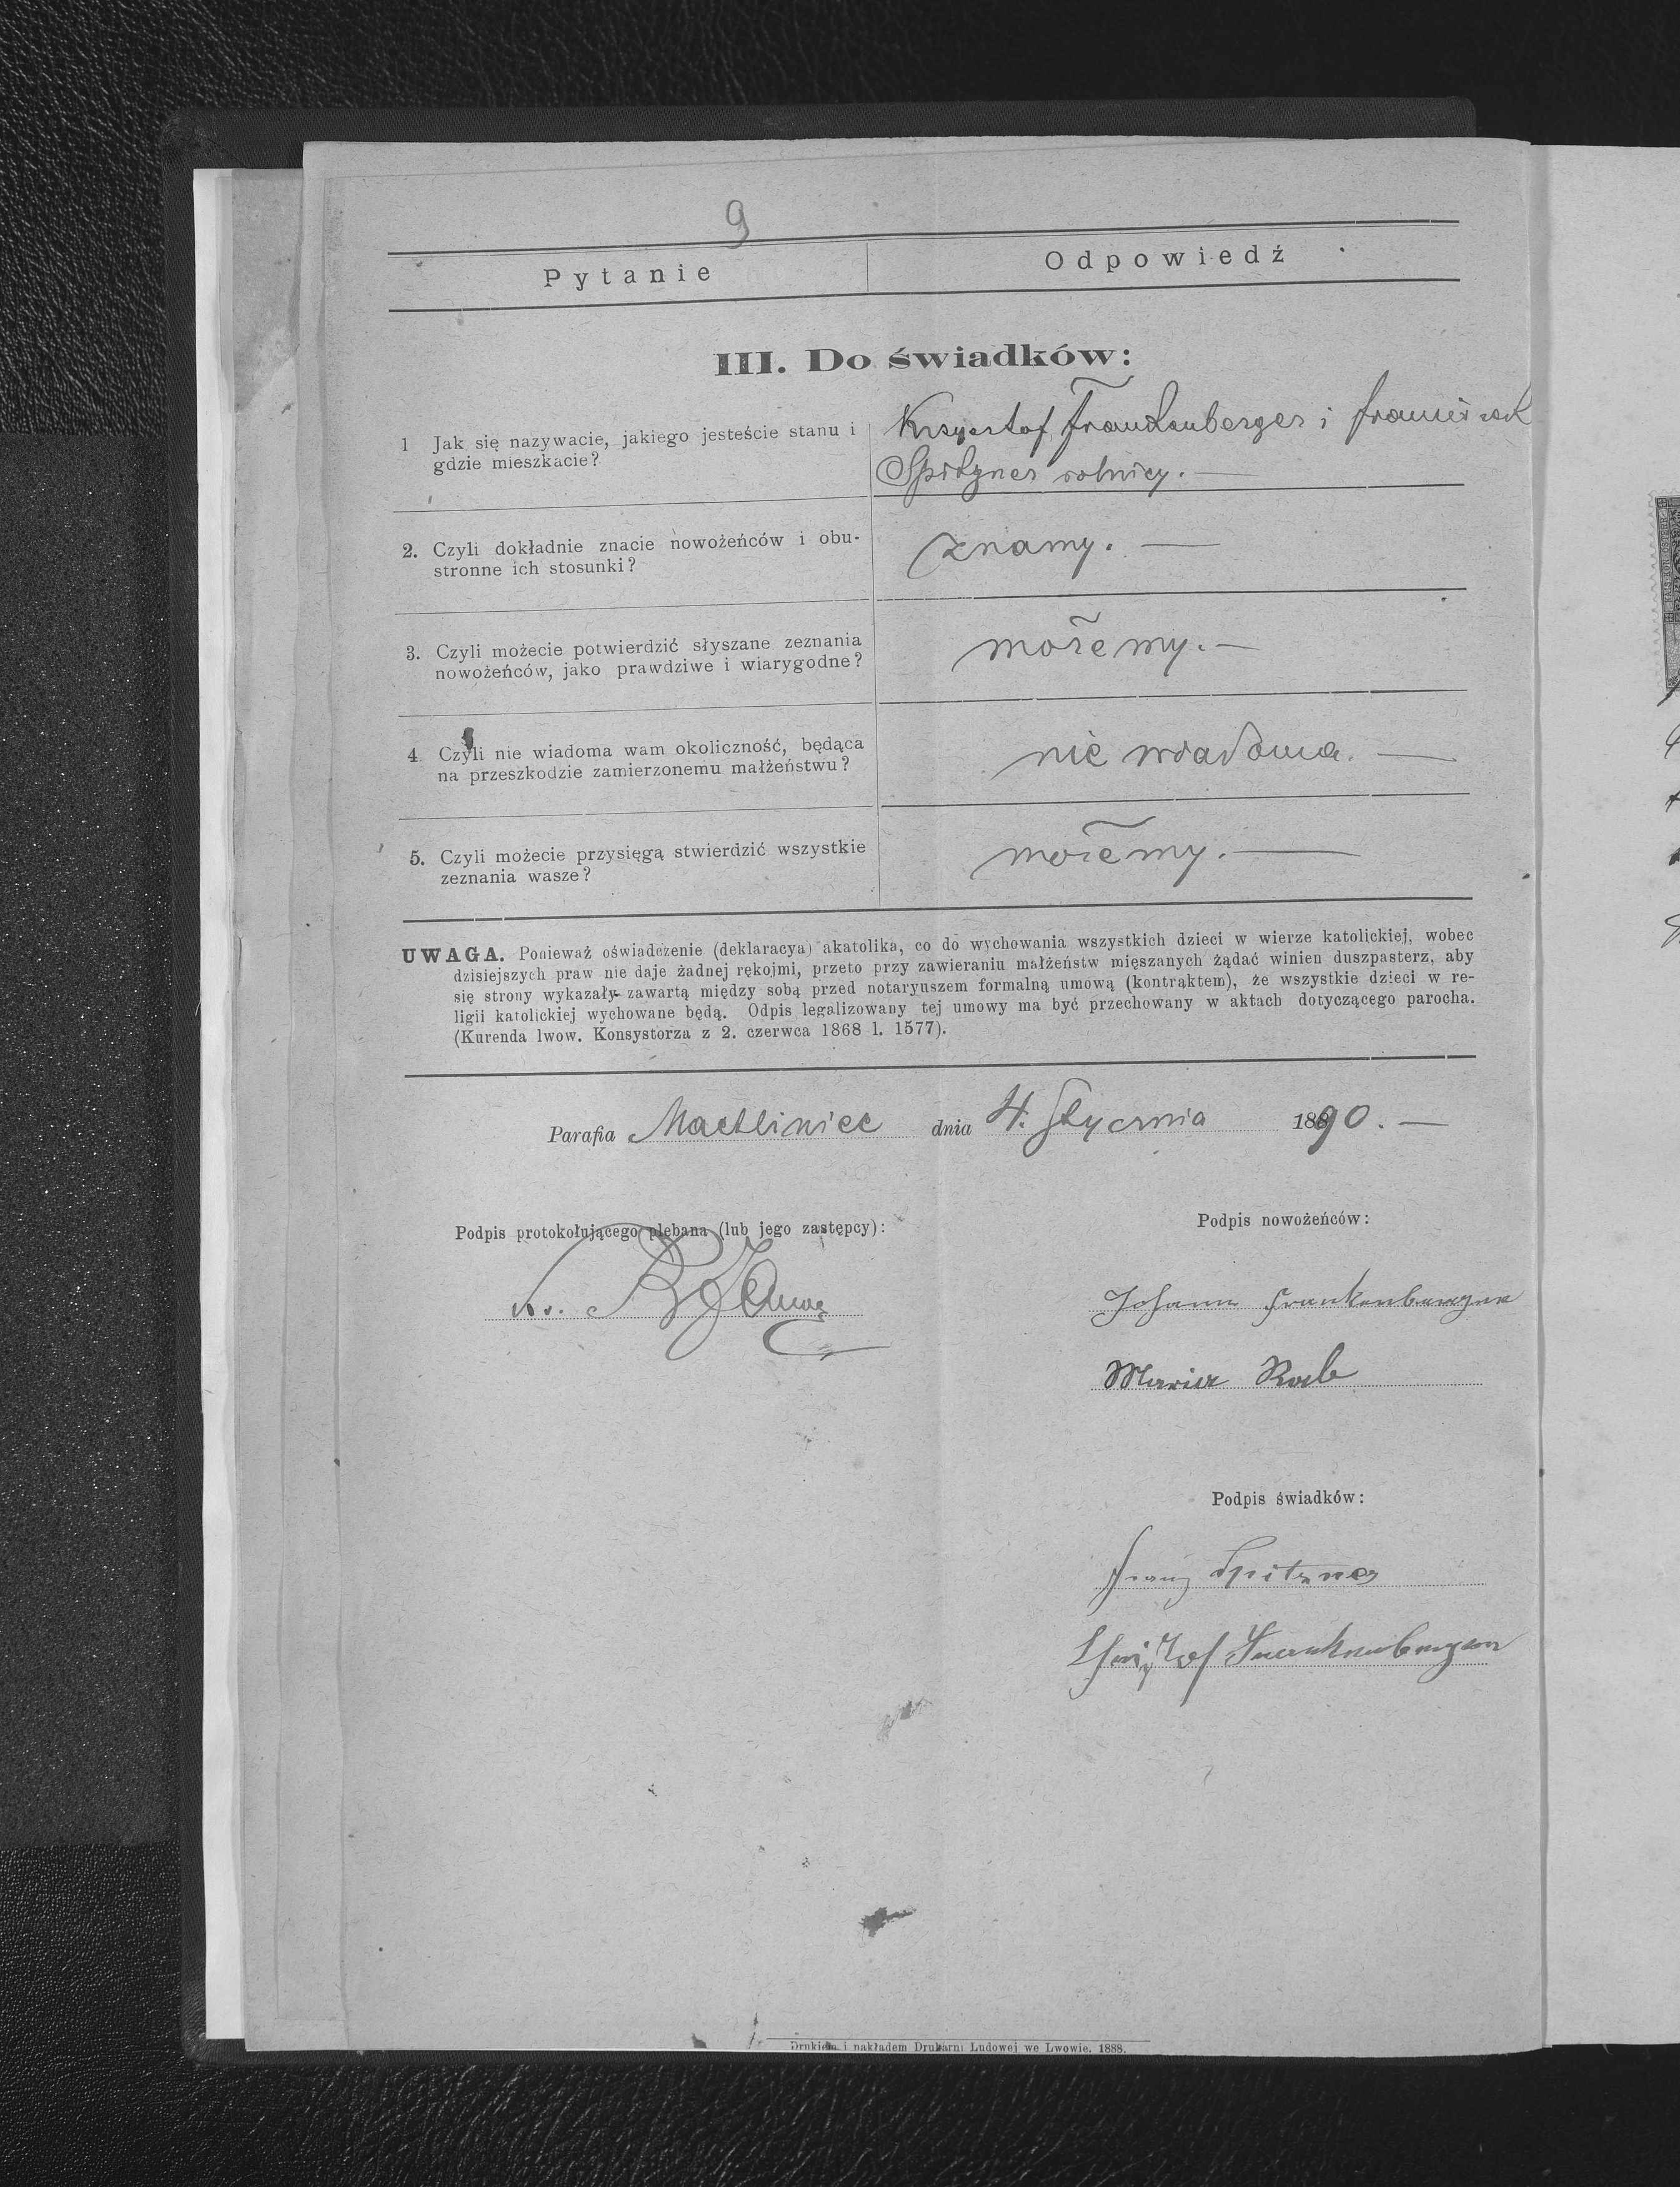 9
Pytanie Odpowiedź
III. Do świadków:
1 Jak się nazywacie, jakiego jesteście stanu i
gdzie mieszkacie?
Krzysztof Frankenberger i Franciszek
Spitzner rolnicy. —
2. Czyli dokładnie znacie nowożeńców i obu-
stronne ich stosunki?
znamy. —
3. Czyli możecie potwierdzić słyszane zeznania
nowożeńców, jako prawdziwe i wiarygodne?
możemy. —
4. Czyli nie wiadoma wam okoliczność, będąca
na przeszkodzie zamierzonemu małżeństwu?
nie wiadoma. —
5. Czyli możecie przysięgą stwierdzić wszystkie
zeznania wasze?
możemy. —
UWAGA. Ponieważ oświadczenie (deklaracya) akatolika, co do wychowania wszystkich dzieci w wierze katolickiej, wobec
dzisiejszych praw nie daje żadnej rękojmi, przeto przy zawieraniu małżeństw mięszanych żądać winien duszpasterz, aby
się strony wykazały zawartą między sobą przed notaryuszem formalną umową (kontraktem), że wszystkie dzieci w re-
ligii katolickiej wychowane będą. Odpis legalizowany tej umowy ma być przechowany w aktach dotyczącego parocha.
(Kurenda lwow. Konsystorza z 2. czerwca 1868 l. 1577).
Parafia Machliniec dnia 4. Stycznia 1890. —
Podpis protokołującego plebana (lub jego zastępcy):
Podpis nowożeńców:
Johann Frankenberger
Maria Raab
Podpis świadków:
Franz Spitzner
Christof Frankenberger
Drukiem i nakładem Drukarni Ludowej we Lwowie. 1888.